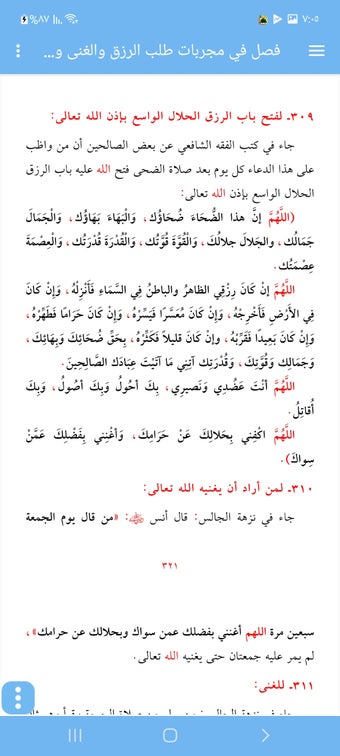 ٧:٠٥
٪٨٧
فصل في مجربات طلب الرزق والغنى و...
٣٠٩ـ لفتح باب الرزق الحلال الواسع بإذن الله تعالى:
جاء في كتب الفقه الشافعي عن بعض الصالحين أن من واظب
على هذا الدعاء كل يوم بعد صلاة الضحى فتح الله عليه باب الرزق
الحلال الواسع بإذن الله تعالى:
(اللَّهُمَّ إنَّ هذا الضُّحَاءَ ضُحَاؤُك، وَالْبَهَاءَ بَهَاؤُك، وَالْجَمَالَ
جَمَالُك، والجَلالَ جلالُكَ، وَالْقُوَّةَ قُوَّتُك، وَالْقُدْرَةَ قُدْرَتُك، وَالْعِصْمَةَ
عِصْمَتُك.
اللَّهُمَّ إنْ كَانَ رِزْقِي الظاهرُ والباطنُ فِي السَّمَاءِ فَأَنْزِلْهُ، وَإِنْ كَانَ
فِي الأَرْضِ فَأَخْرِجْهُ، وَإِنْ كَانَ مُعَسَّرًا فَيَسِّرْهُ، وَإِنْ كَانَ حَرَامًا فَطَهِّرْهُ،
وَإِنْ كَانَ بَعِيدًا فَقَرِّبْهُ، وإنْ كَانَ قليلاً فَكَثِّرْهُ، بِحَقِّ ضُحَائِكَ وَبِهَائِكَ،
وَجَمَالِكَ وَقُوَّتِكَ، وَقُدْرَتِكَ آتِنِي مَا آتَيْتَ عِبَادَكَ الصَّالِحِينَ.
اللَّهُمَّ أنْتَ عَضُدِي وَنَصيرِي، بِكَ أحُولُ وَبِكَ أصُولُ، وَبِكَ
أُقاتِلُ.
اللَّهُمَّ اكْفِنِي بِحَلالِكَ عَنْ حَرَامِكَ، وَأَغْنِنِي بِفَضْلِكَ عَمَّنْ
سِواكَ).
٣١٠ـ لمن أراد أن يغنيه الله تعالى:
جاء في نزهة الجالس: قال أنس ﷺ: «من قال يوم الجمعة
٣٢١
سبعين مرة اللهم أغنني بفضلك عمن سواك وبحلالك عن حرامك»،
لم يمر عليه جمعتان حتى يغنيه الله تعالى.
٣١١ـ للغنى: